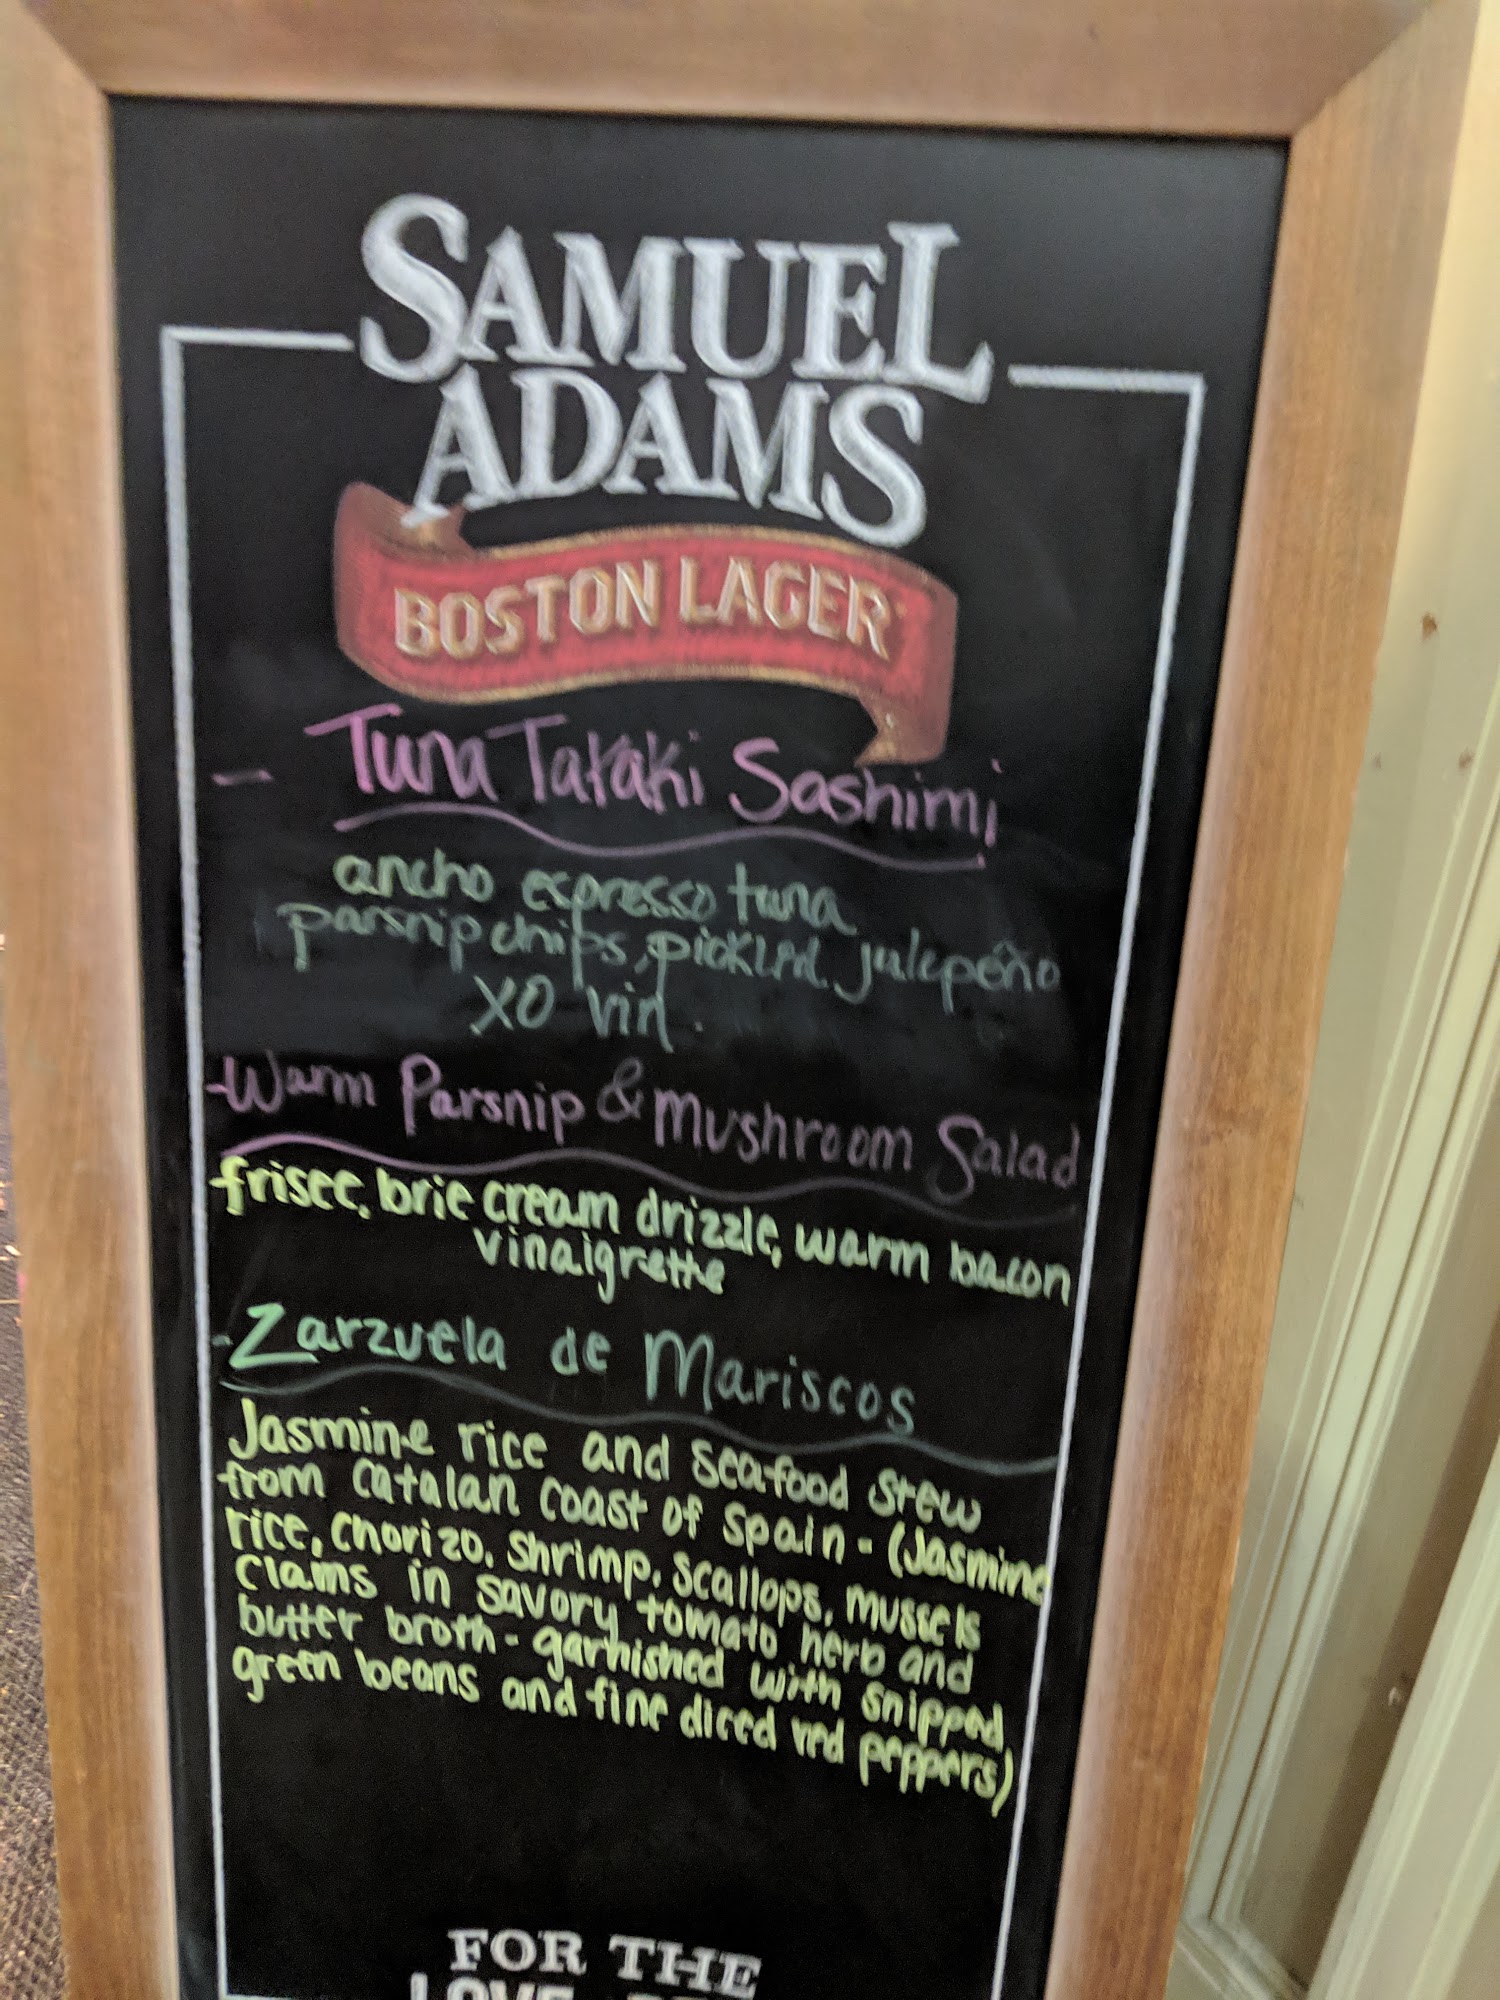 SAMUEL
ADAMS
BOSTON LAGER
- Tuna Tataki Sashimi
ancho espresso tuna
parsnip chips, pickled jalepeño
XO vin.
-Warm Parsnip & Mushroom Salad
frisee, brie cream drizzle, warm bacon
vinaigrette
-Zarzuela de Mariscos
Jasmine rice and seafood stew
from catalan coast of spain - (Jasmine
rice, chorizo, shrimp, scallops, mussels
clams in savory tomato herb and
butter broth - garnished with snipped
green beans and fine diced red peppers)
FOR THE
LOVE